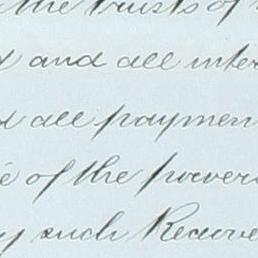 the trusts of
and all inter
all paymen
of the powers
such Receive